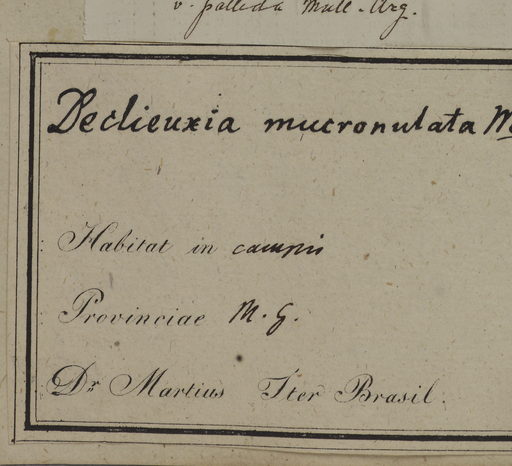 v. pallida Müll-Arg.
Declieuxia mucronulata M
Habitat in campis
Provinciae M. G.
Dr. Martius Iter Brasil.